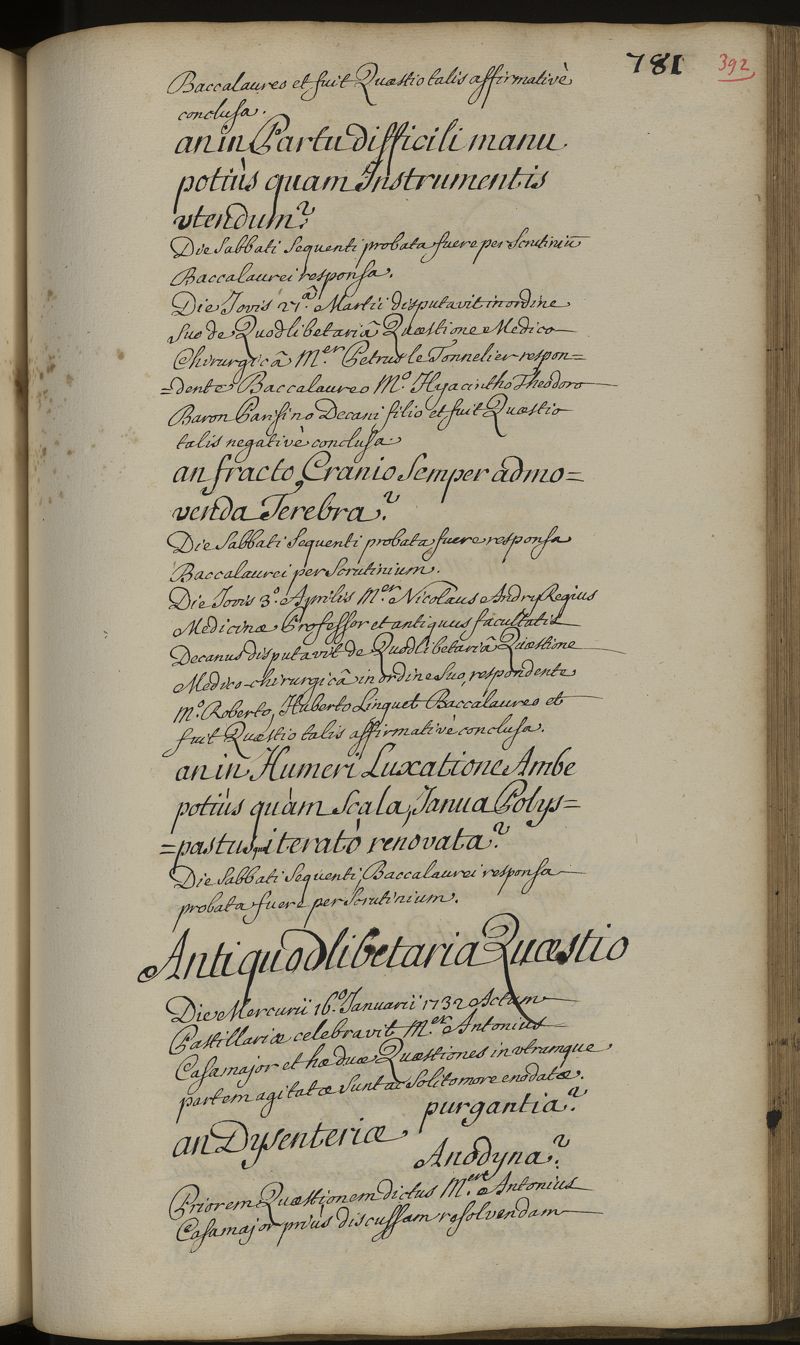 781 392
Baccalaureo et fuit Quæstio talis affirmativè
conclusa.
an in Partu difficili manu
potiùs quam Instrumentis
vtendum?
Die Sabbati Sequenti probata fuere per Scrutiniũ
Baccalaurei responsa.
Die Jovis 27.ª Martii disputavit in ordine
suo de Quodlibetariâ Quæstione Medico
Chirurgicâ M.er Petrus le Tonnelier respon=
=dente Baccalaureo M.o Hyacintho Theodoro
Baron Parisino Decani filio et fuit Quæstio
talis negativè conclusa
an fracto Cranio Semper admo=
venda Terebra?
Die Sabbati Sequenti probata fuere responsa
Baccalaurei per Scrutinium.
Die Jovis 3.o Aprilis M.er Nicolaus Andry Regius
Medicinæ Professor et antiquus facultatis
Decanus disputavit de Quodlibetariâ Quæstione
Medico-chirurgicâ in ordine Suo, respondente
M.o Roberto, Huberto Linguet Baccalaureo et
fuit Quæstio talis affirmativè conclusa.
an in Humeri Luxatione Ambe
potiùs quàm Scala, Janua Polys=
=pastusque iteratò renovata?
Die Sabbati Sequenti Baccalaurei responsa
probata fuere per Scrutinium.
Antiquodlibetaria Quæstio
Die Mercurii 16.o Januarii 1732 Actum
Pastillariæ celebravit M.er Antonius
Casamajor et hæ duæ Quæstiones in vtramque
partem agitatæ Sunt ac Solito more enodatæ.
purgantia?
an Dysenteriæ
Anodyna?
Priorem Quæstionem dictus M.er Antonius
Casamajor priùs discussam resolvendam